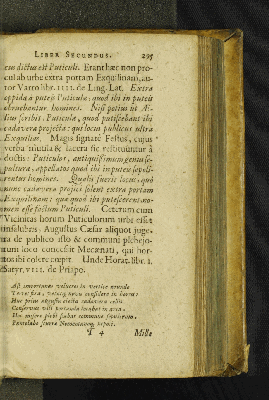 LIBER SECUNDUS. 295
cum dictus est Puticuli. Erant hæc non pro-
cul ab urbe extra portam Exquilinam, au-
tor Varro libr. IIII. de Ling. Lat. Extra
oppida a puteis Puticulæ; quod ibi in puteis
obruebantur homines. Nisi potius ut Æ-
lius scribit, Puticula, quod putescebant ibi
cadavera projecta: qui locus publicus ultra
Exquilias. Magis signate Festus, cujus
verba mutila & lacera sic restituuntur à
doctis: Puticulos, antiquissimum genus se-
pulturæ, appellatos quod ibi in puteis sepeli-
rentur homines. Qualis fuerit locus, quo
nunc cadavera projici solent extra portam
Exquilinam: quæ quod ibi putescerent, no-
men esse factum Puticuli. Ceterum cum
Vicinitas horum Puticulorum urbi esset
insalubris, Augustus Cæsar aliquot juge-
ra de publico isto & communi plebejo-
rum loco concessit Mecænati, qui hor-
tos ibi colere cœpit. Unde Horat. libr. I.
Satyr. VIII. de Priapo.
Huc prius angustis ejecta cadavera cellis
Conservus vili portanda locabat in arca.
Hoc miseræ plebi stabat commune sepulcrum,
Pantolabo scurræ Nomentanoque nepoti.
T 4 Mille